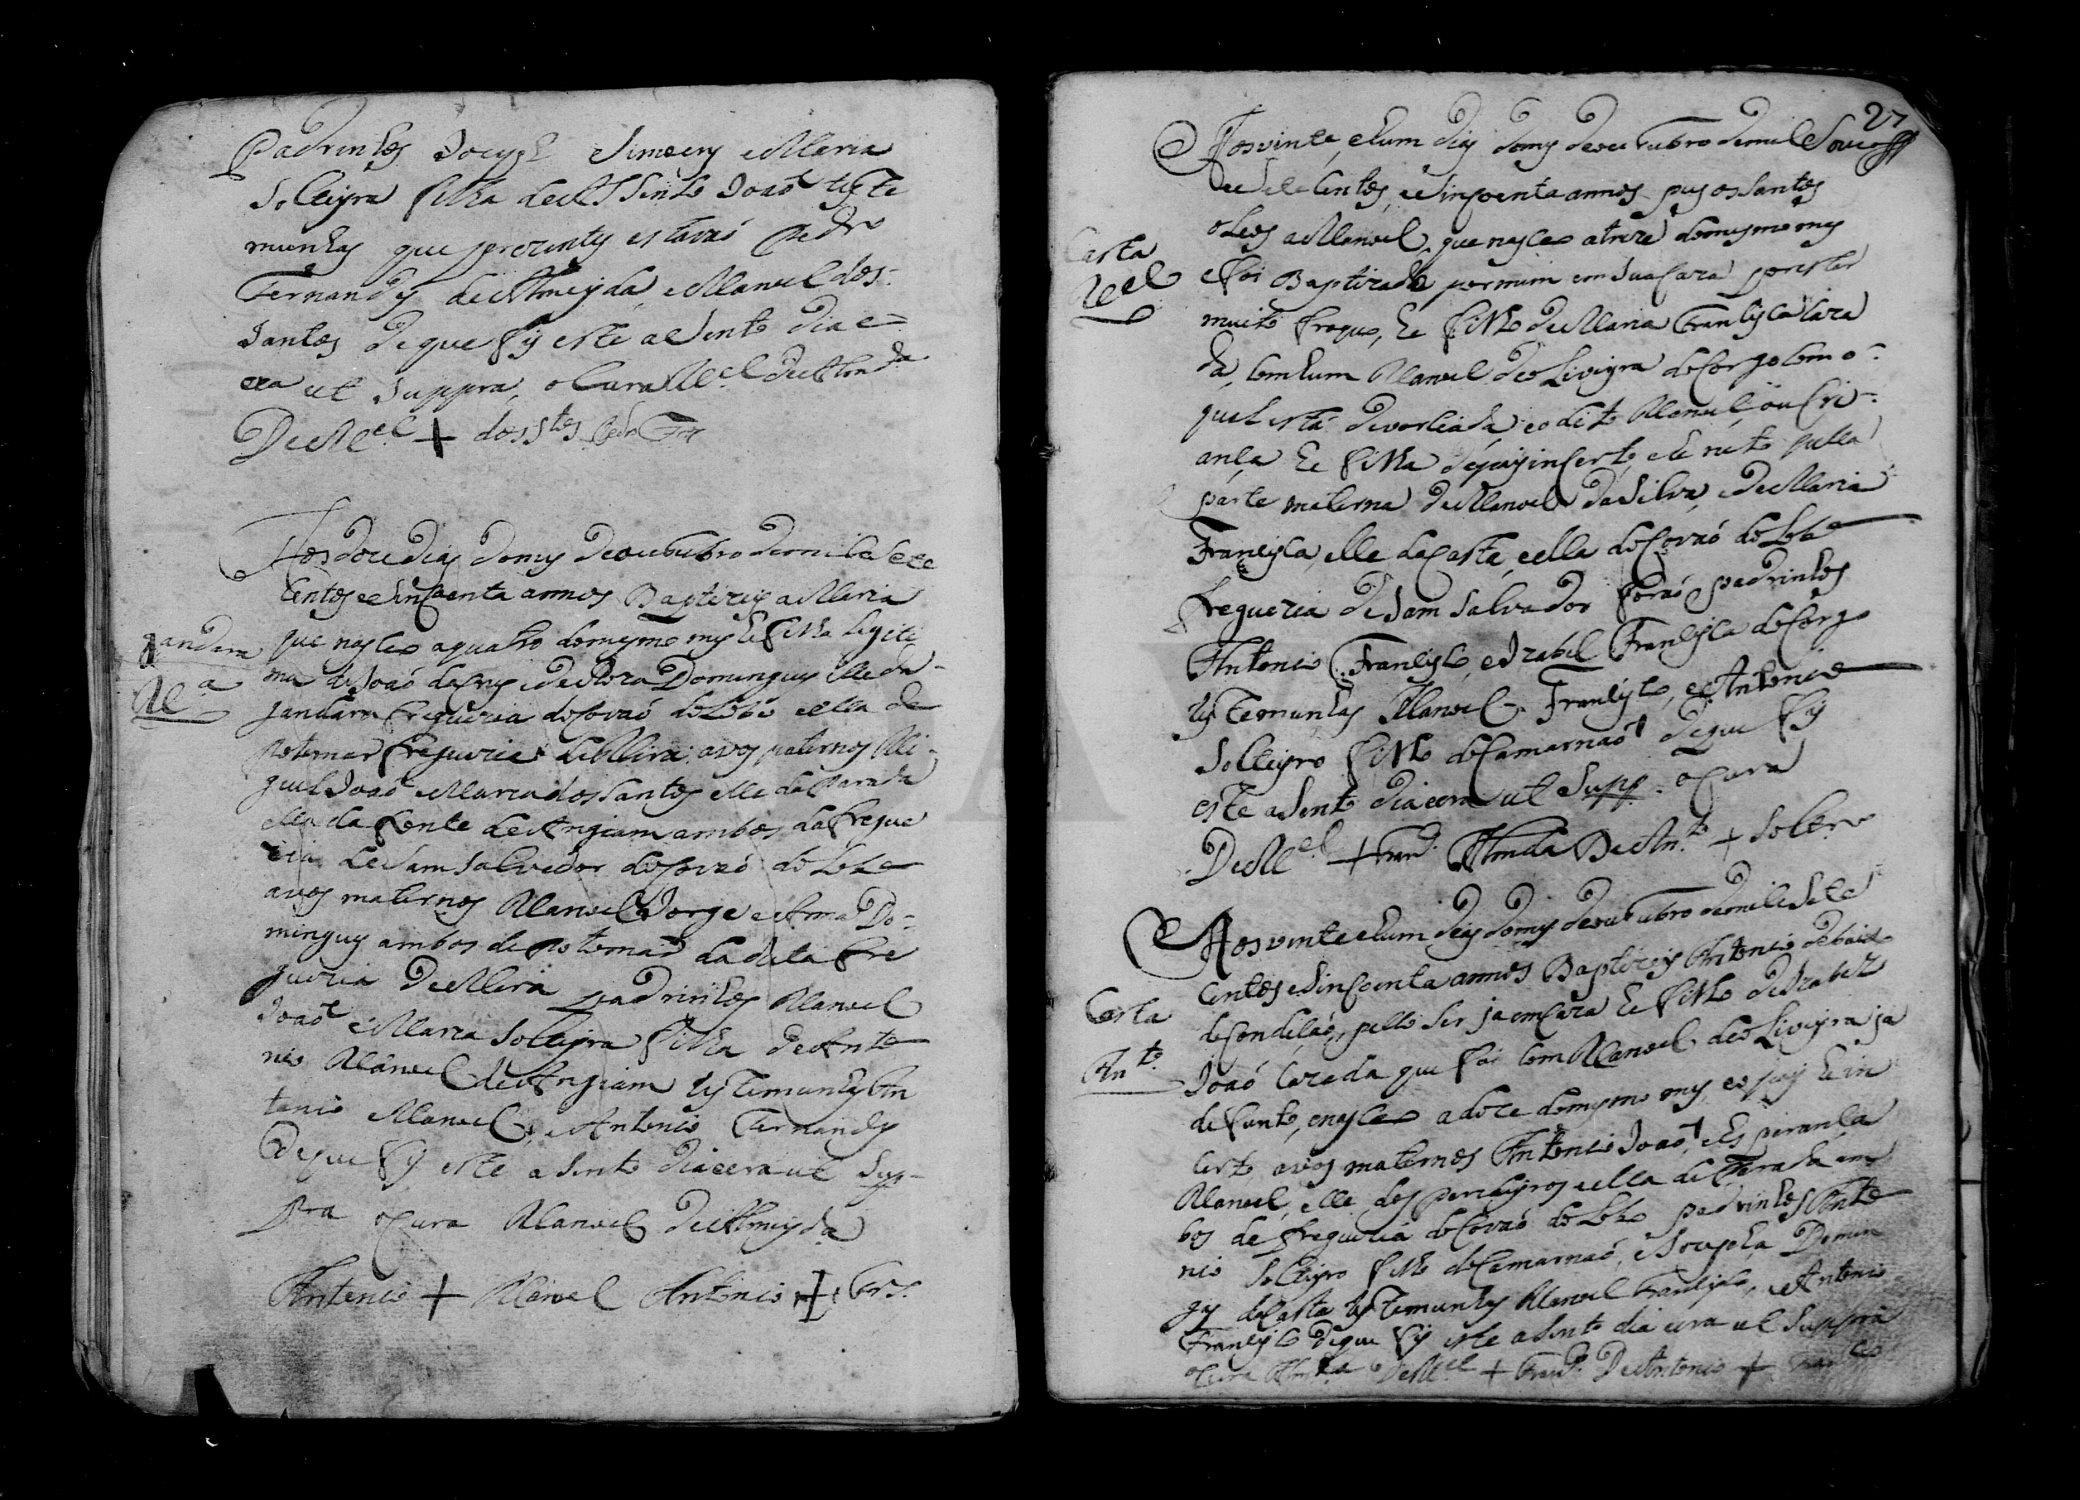 Padrinhos Jozeph Simoens e Maria
Solleyra filha de Jasinto João teste
munhas que prezentes estavaó Pedro
Fernandes de Almeyda, e Manuel dos
Santos de que fis este asento dia e
era ut suppra, o Cura Mel de Almda
De Mel + dos Stos Pedro Frz
Aos doze dias do mes de outubro de mil e sete
centos e sincoenta annos Baptizei a Maria
que nasceo a quatro do mesmo mes he filha legiti
ma de João da Crus e de Roza Domingues elle da
Jandara freguezia do Covaó do Lobo e ella de
Potomar freguezia de Mira: avos paternos Mi
guel João e Maria dos Santos elle da Parada
ella da fonte de Angiam ambos da fregue
zia de Sam Salvador do Covaó do Lobo
avos maternos Manoel Jorge e Anna Do
mingues ambos de Potomar da dita fre
guezia de Mira Padrinhos Manoel
João e Maria Solleyra filha de Anto
nio Manoel de Angiam testemunhas An
tonio Manoel, e Antonio Fernandes
de que fis este asento dia e era ut sup
pra o Cura Manoel de Almeyda
Antonio + Manoel Antonio + Frz.
Jandara
Ma
27
Aos vinte, e hum dias do mes de outubro de mil
e sete centos, e sincoenta annos pus os santos
oleos a Manoel, que nasceo a treze do mesmo mes
e foi Baptizado por mim em sua caza por estar
muito fraquo, he filho de Maria Francisca caza
da, com hum Manuel de Oliveyra do Corgo com o
qual está divorciada, e o dito Manuel, ou cri
ança he filha de pay incerto, e he neto pella
parte materna de Manoel da Silva, e de Maria
Francisca, elle da Carta, e ella do Covaó do Lobo
freguezia de Sam Salvador foraó padrinhos
Antonio Francisco, e Izabel Francisca do Corgo
testemunhas Manoel Francisco, e Antonio
Solleyro filho do Camarnaó de que fis
este asento dia e era ut supp. o Cura
De Mel + Francº. Almda De Antº + Soleyro
Carta
Mel
Aos vinte e hum dias do mes de outubro de mil e sete
centos e sincoenta annos Baptizei Antonio debaixo
de condiçaó, pello ser ja em caza he filho de Izabel
João cazada que foi com Manoel de Oliveyra ja
defunto, e nasceo a doze do mesmo mes e o pay he in
certo, avos maternos Antonio João, e Esperança
Manoel, elle dos e ella da Parada am
bos da freguezia do Covaó do Lobo padrinhos Anto
nio Solleyro filho do Camarnaó, e Jozepha Domin
gues da Carta testemunhas Manoel Francisco, e Antonio
Francisco de que fis este asento dia e era ut suppra
o Cura Almda De Mel + Francº. De Antonio + Franco
Carta
Antº